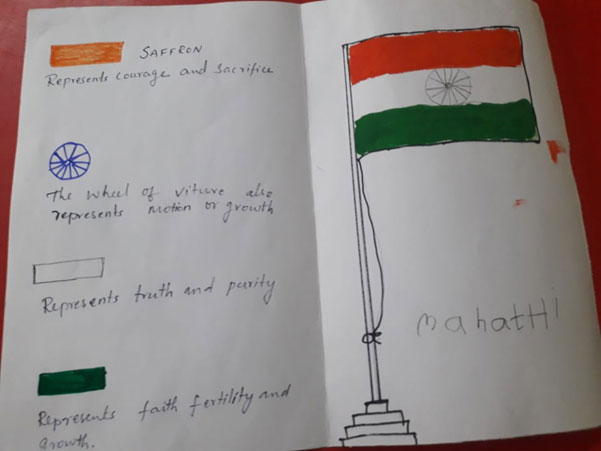 SAFFRON
Represents courage and sacrifice
The wheel of viture also
represents motion or growth
Represents truth and purity
Represents faith fertility and
Growth.
mahatHi